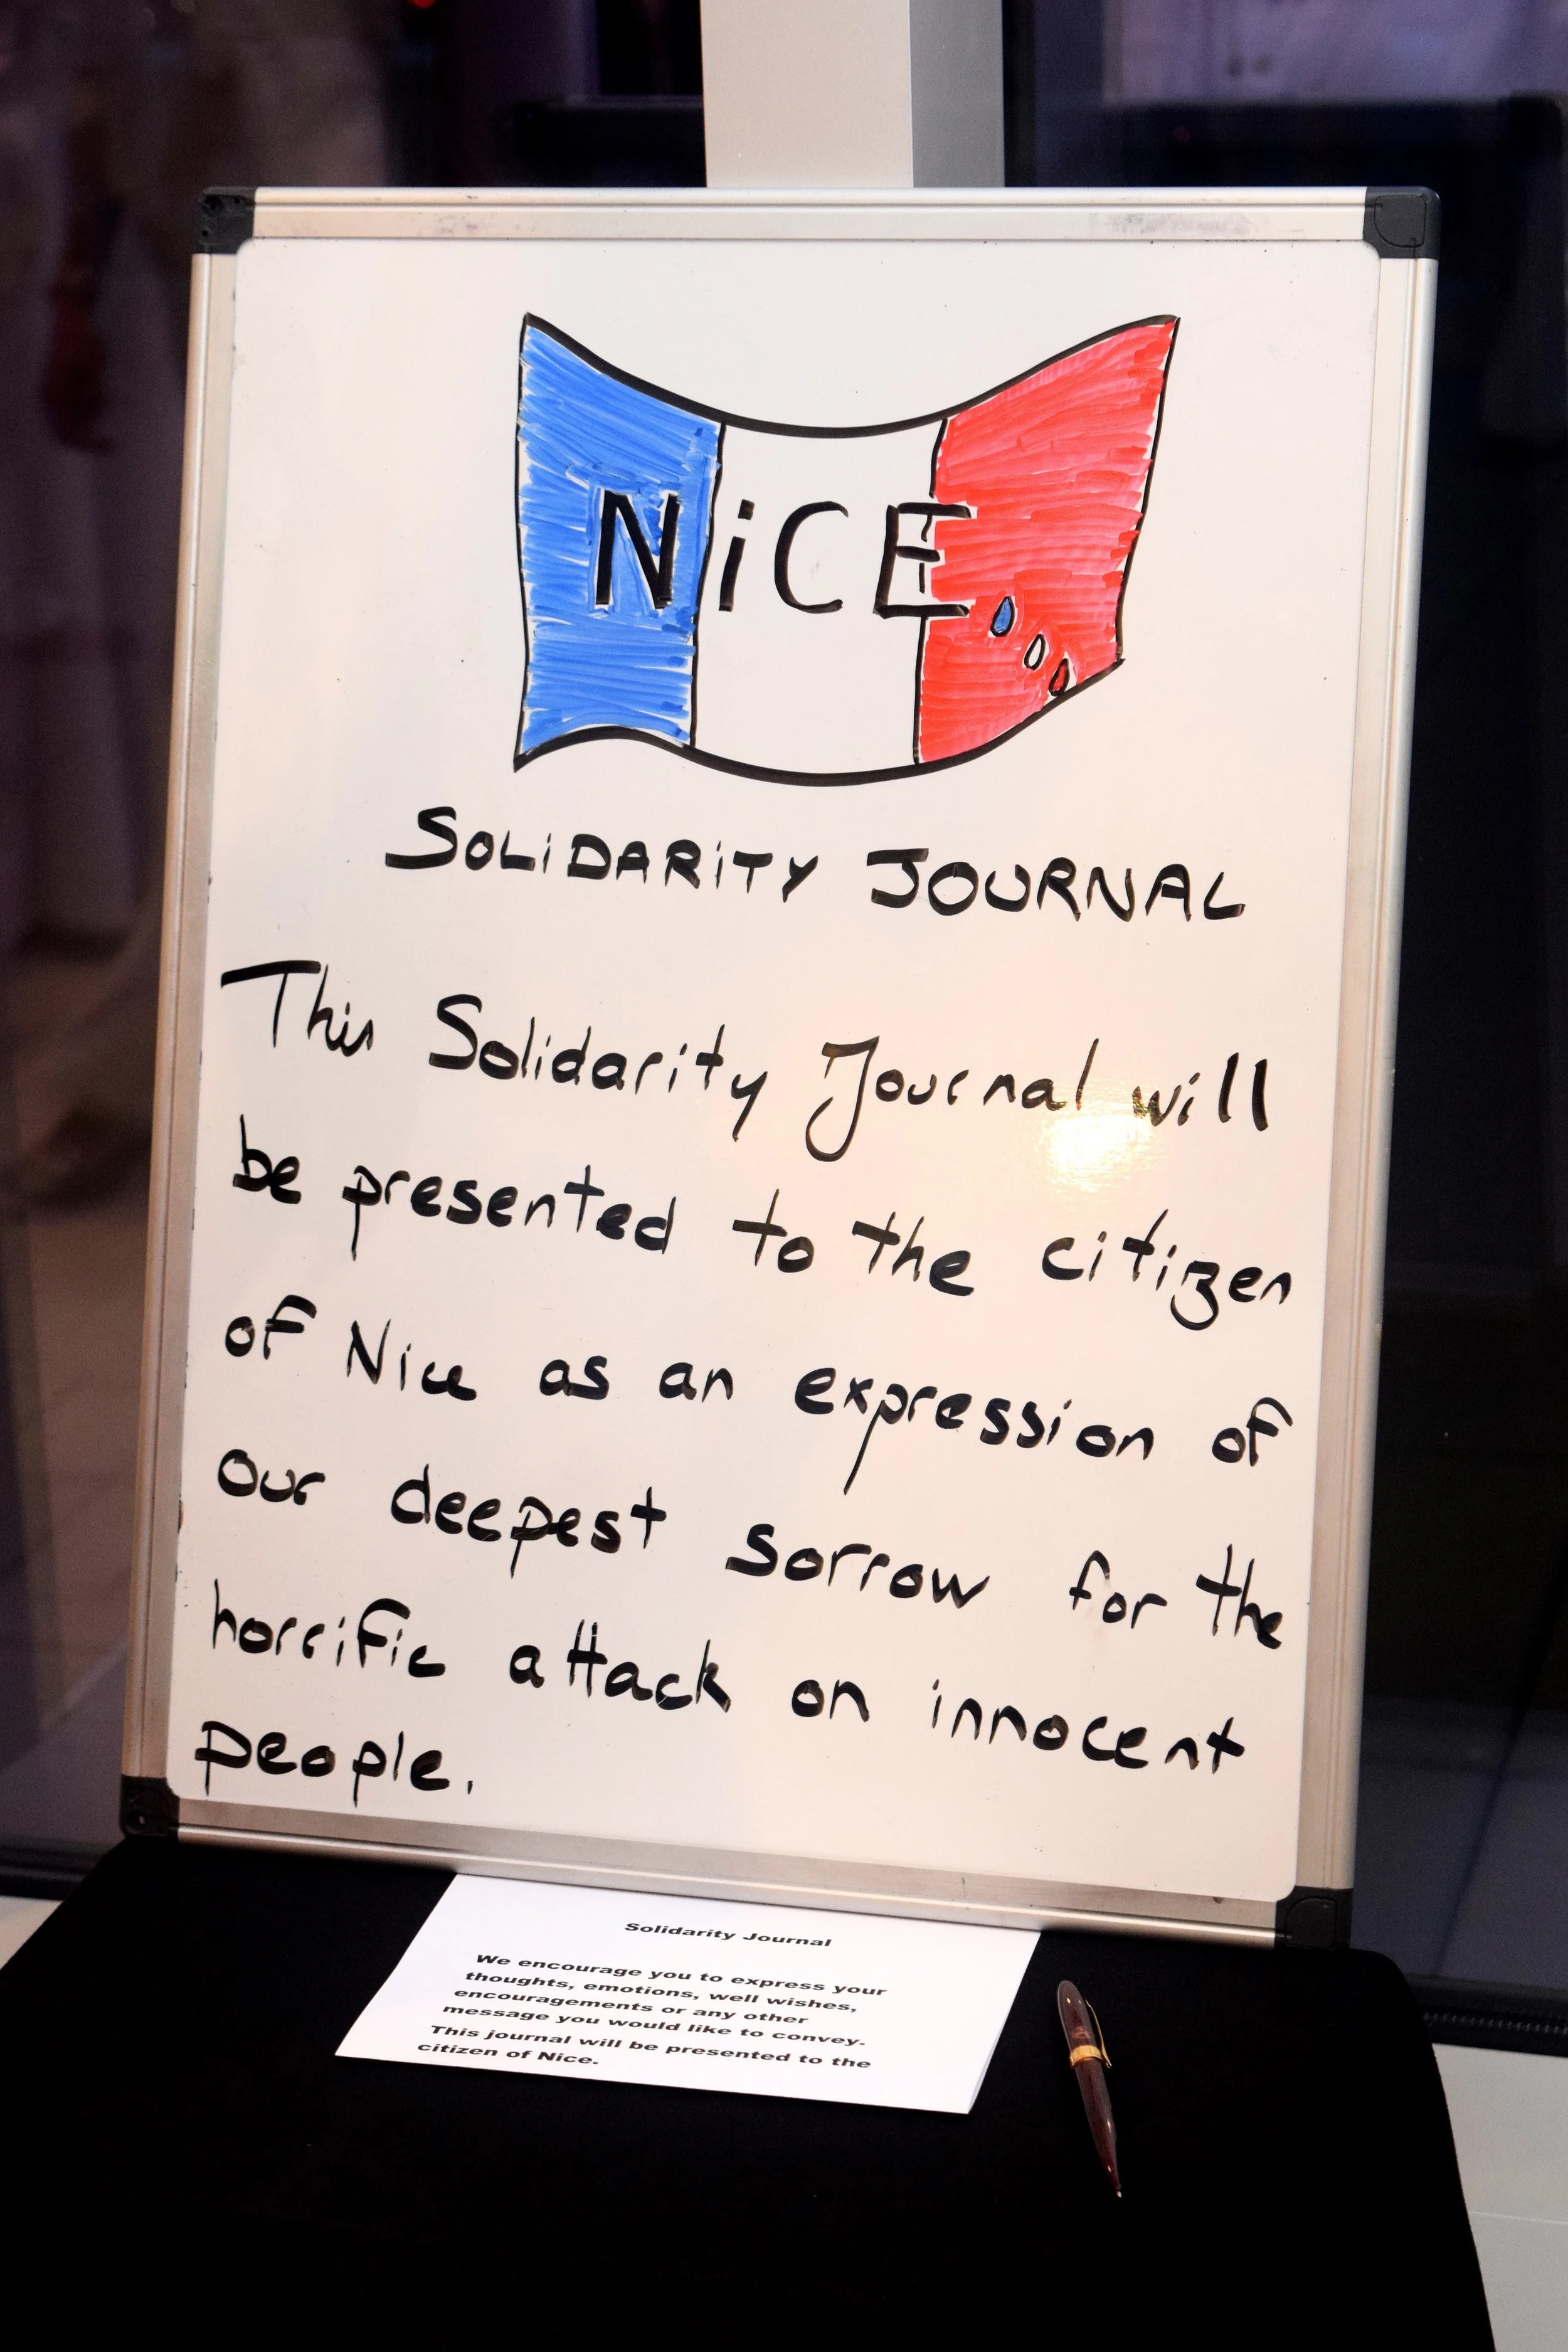 NiCE
SOLiDARiTY JOURNAL
This Solidarity Journal will
be presented to the citizen
of Nice as an expression of
our deepest sorrow for the
horrific attack on innocent
people.
Solidarity Journal
We encourage you to express your
thoughts, emotions, well wishes,
encouragements or any other
message you would like to convey.
This journal will be presented to the
citizen of Nice.